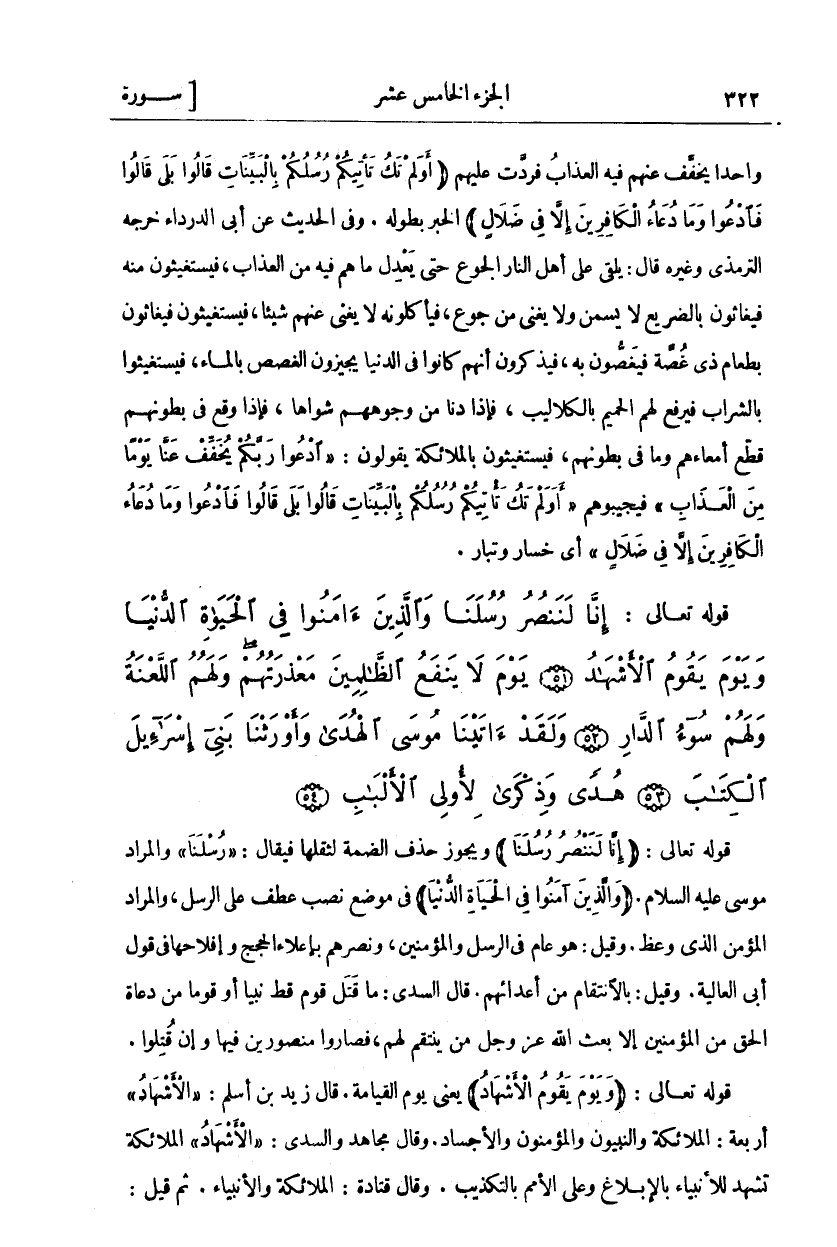 ٣٢٢ الجزء الخامس عشر [ سـورة
واحدا يخفَّف عنهم فيه العذابُ فردّت عليهم ﴿أَوَلَمْ تَكُ تَأْتِيكُمْ رُسُلُكُمْ بِالْبَيِّنَاتِ قَالُوا بَلَى قَالُوا
فَٱدْعُوا وَمَا دُعَاءُ الْكَافِرِينَ إِلَّا فِى ضَلَالٍ﴾ الخبر بطوله . وفى الحديث عن أبى الدرداء خرجه
الترمذى وغيره قال : يلقى على أهل النار الجوع حتى يَعْدِل ما هم فيه من العذاب ، فيستغيثون منه
فيغاثون بالضريع لا يسمن ولا يغنى من جوع ، فيأكلونه لا يغنى عنهم شيئا ، فيستغيثون فيغاثون
بطعام ذى غُصَّة فيَغَصُّون به ، فيذكرون أنهم كانوا فى الدنيا يجيزون الغصص بالمـاء ، فيستغيثوا
بالشراب فيرفع لهم الحميم بالكلاليب ، فإذا دنا من وجوههـم شواها ، فإذا وقع فى بطونهـم
قطّع أمعاءهم وما فى بطونهم ، فيستغيثون بالملائكة يقولون : « ٱدْعُوا رَبَّكُمْ يُخَفِّفْ عَنَّا يَوْمًا
مِنَ الْعَـذَابِ » فيجيبوهم « أَوَلَمْ تَكُ تَأْتِيكُمْ رُسُلُكُمْ بِالْبَيِّنَاتِ قَالُوا بَلَى قَالُوا فَٱدْعُوا وَمَا دُعَاءُ
الْكَافِرِينَ إِلَّا فِى ضَلَالٍ » أى خسار وتبار .
قوله تعـالى : إِنَّا لَنَنصُرُ رُسُلَنَـا وَٱلَّذِينَ ءَامَنُوا فِى ٱلْحَيَوٰةِ ٱلدُّنْيَـا
وَيَوْمَ يَقُومُ ٱلْأَشْهَـٰدُ ٥١ يَوْمَ لَا يَنفَعُ ٱلظَّـٰلِمِينَ مَعْذِرَتُهُمْ ۖ وَلَهُمُ ٱللَّعْنَةُ
وَلَهُمْ سُوٓءُ ٱلدَّارِ ٥٢ وَلَقَـدْ ءَاتَيْنَا مُوسَى ٱلْهُدَىٰ وَأَوْرَثْنَا بَنِىٓ إِسْرَٰٓءِيلَ
ٱلْكِتَـٰبَ ٥٣ هُـدًى وَذِكْرَىٰ لِأُولِى ٱلْأَلْبَـٰبِ ٥٤
قوله تعالى : ﴿إِنَّا لَنَنْصُرُ رُسُلَنَا﴾ ويجوز حذف الضمة لثقلها فيقال : « رُسْلَنَا » والمراد
موسى عليه السلام . ﴿وَالَّذِينَ آمَنُوا فِى الْحَيَاةِ الدُّنْيَا﴾ فى موضع نصب عطف على الرسل ، والمراد
المؤمن الذى وعظ . وقيل : هو عام فى الرسل والمؤمنين ، ونصرهم بإعلاء الحجج وإفلاحها فى قول
أبى العالية . وقيل : بالٱنتقام من أعدائهم . قال السدى : ما قَتَل قوم قط نبيا أو قوما من دعاة
الحق من المؤمنين إلا بعث الله عز وجل من ينتقم لهم ، فصاروا منصورين فيها وإن قُتِلوا .
قوله تعـالى : ﴿وَيَوْمَ يَقُومُ الْأَشْهَادُ﴾ يعنى يوم القيامة . قال زيد بن أسلم : « الْأَشْهَادُ »
أربعة : الملائكة والنبيون والمؤمنون والأجساد . وقال مجاهد والسدى : « الْأَشْهَادُ » الملائكة
تشهد للأنبياء بالإبـلاغ وعلى الأمم بالتكذيب . وقال قتادة : الملائكة والأنبياء . ثم قيل :